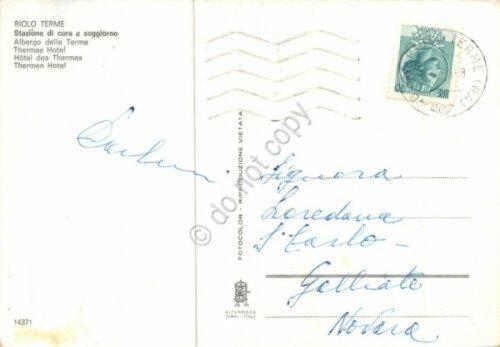 RIOLO TERME
Stazione di cura e soggiorno
Albergo delle Terme
Thermae Hotel
Hôtel des Thermes
Thermen Hotel
TERME (RA)
Signora
Loredana
S. Carlo
Galliate
Novara
FOTOCOLOR - RIPRODUZIONE VIETATA
ALTEROCCA
TERNI - ITALY
14371
© do not copy